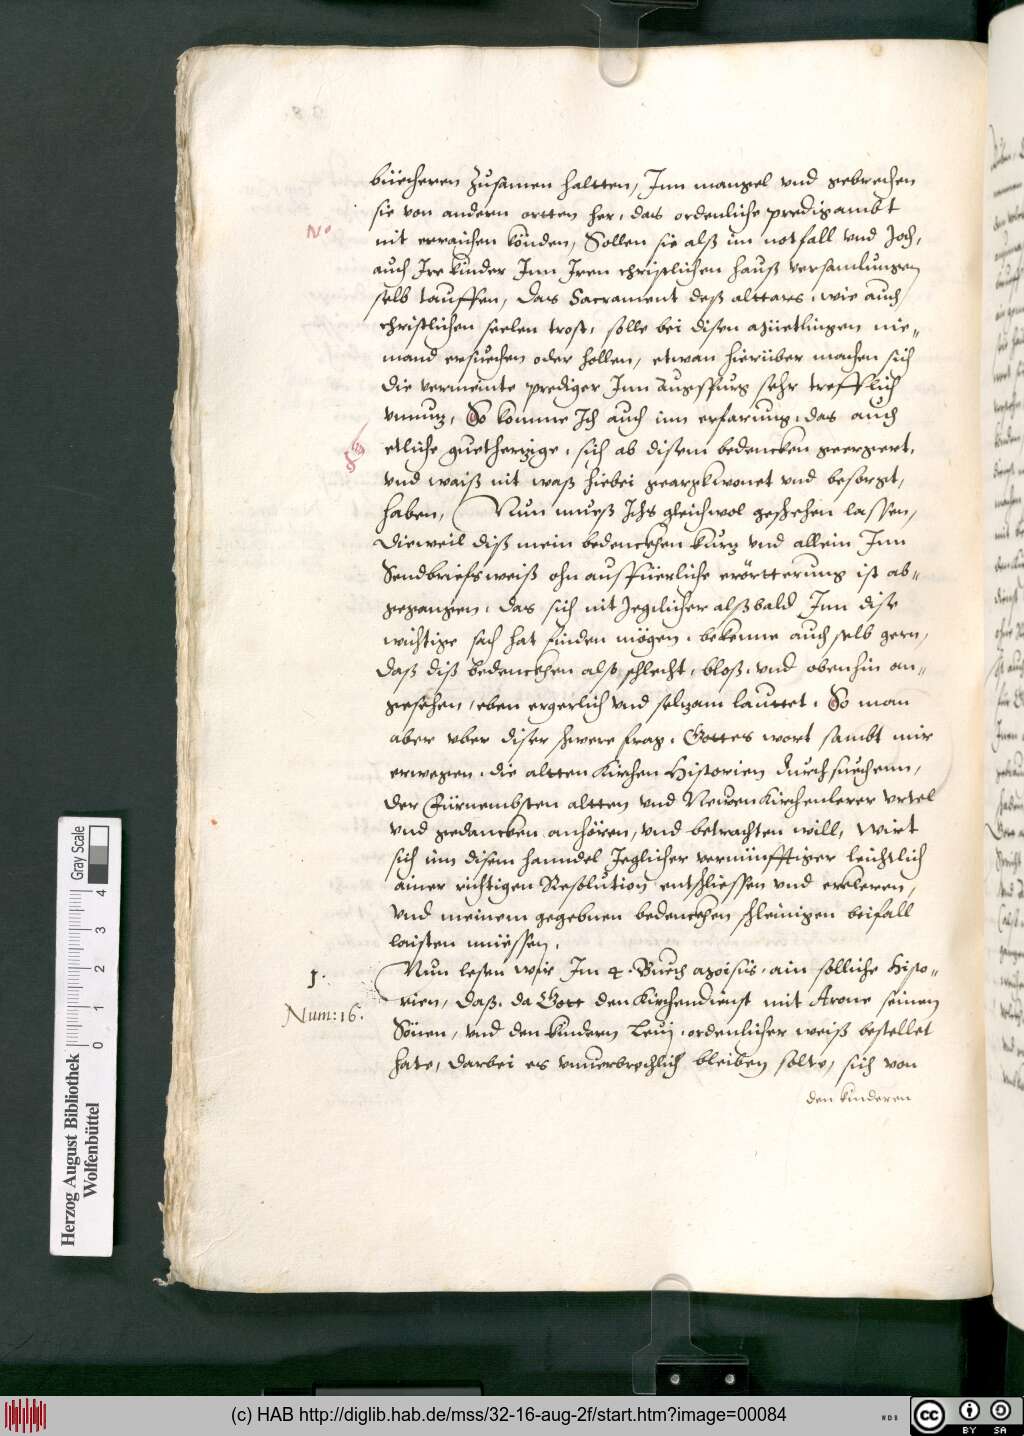 büecheren zusamen haltten, Inn mangel vnd gebrechen
sie von andern ortten her, das ordenliche predigambt
N°
nit erraichen könden, Sollen sie alß im notfall vnd Joch,
auch Ire kinder Inn Iren christlichen hauß versamlungen
selb tauffen, Das Sacrament deß alttars, wie auch
christlichen seelen trost, solle bei disen nie=
mand ersuechen oder hollen, etwan hierüber machen sich
die vermeinte prediger Inn Augspurg sehr trefflich
vnnuz, So komme Ich auch inn erfarung, das auch
etliche guethertzige, sich ab disem bedencken geergert,
vnd waiß nit waß hiebei geargkwonet vnd besorgt,
haben, Nun mueß Ichs gleichwol geschehen lassen,
Dieweil diß mein bedenckhen kurtz vnd allein Inn
Sendbriefs weiß ohn ausfüerliche erörtterung ist ab=
gegangen, das sich nit Jegclicher alßbald Inn dise
wichtige sach hat finden mögen, bekenne auch selb gern,
daß diß bedenckhen also schlecht, bloß, vnd obenhin an=
gesehen, eben ergerlich vnd selzam lauttet, So man
aber vber diser schwere frag, Gottes wort sambt mir
erwegen, die altten Kirchen Historien durchsuechenn,
der Fürnembsten altten vnd Newen Kirchenlerer vrtel
vnd gedancken anhören, vnd betrachten will, Wirt
sich inn disem hanndel Jeglicher vernünfftiger leichtlich
ainer richtigen Resolution entschliessen vnd erkleren,
vnd meinem gegebnen bedenckhen schleinigen beifall
laisten müessen,
1. Nun lesen wir Im 4. Buech Moisis, ain solliche Histo=
Num: 16. rien, Daß, da Gott den Kirchendienst mit Arone seinen
Sönen, vnd den kindern Leuj, ordenlicher weiß bestellet
hate, darbei es vnuerbrechlich bleiben solte, sich von
den kinderen
Herzog August Bibliothek
Wolfenbüttel
0 1 2 3 4
Gray Scale
(c) HAB http://diglib.hab.de/mss/32-16-aug-2f/start.htm?image=00084
cc BY SA